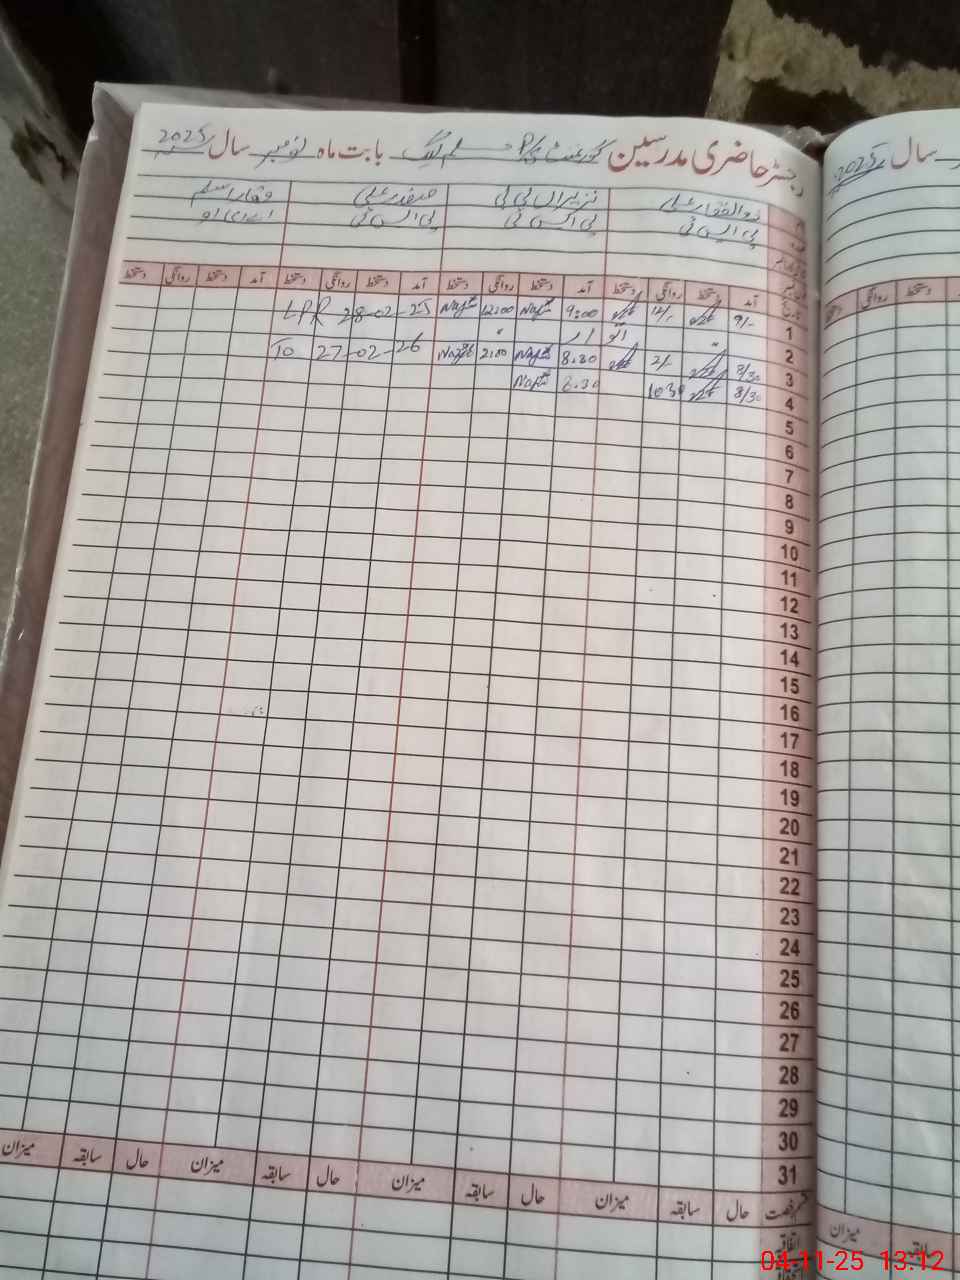 رجسٹر حاضری مدرسین گورنمنٹ P/S بابت ماہ نومبر سال 2025
ذوالفقار علی نذیراں بی بی صفدر علی وقار اسلم
پی ایس ٹی پی ایس ٹی پی ایس ٹی
آمد دستخط روانگی دستخط آمد دستخط روانگی دستخط آمد دستخط روانگی دستخط آمد دستخط روانگی دستخط
1 9/- 12/- 9:00 12:00 LPR 28-02-25
2 اتوار
3 8/30 2/- 8.30 2:00 TO 27-02-26
4 8/30 1030 8.30
5
6
7
8
9
10
11
12
13
14
15
16
17
18
19
20
21
22
23
24
25
26
27
28
29
30
31
حال سابقہ میزان حال سابقہ میزان حال سابقہ میزان حال سابقہ میزان
اتفاقیہ
سال 2025
دستخط روانگی دستخط
میزان سابقہ
04-11-25 13:12